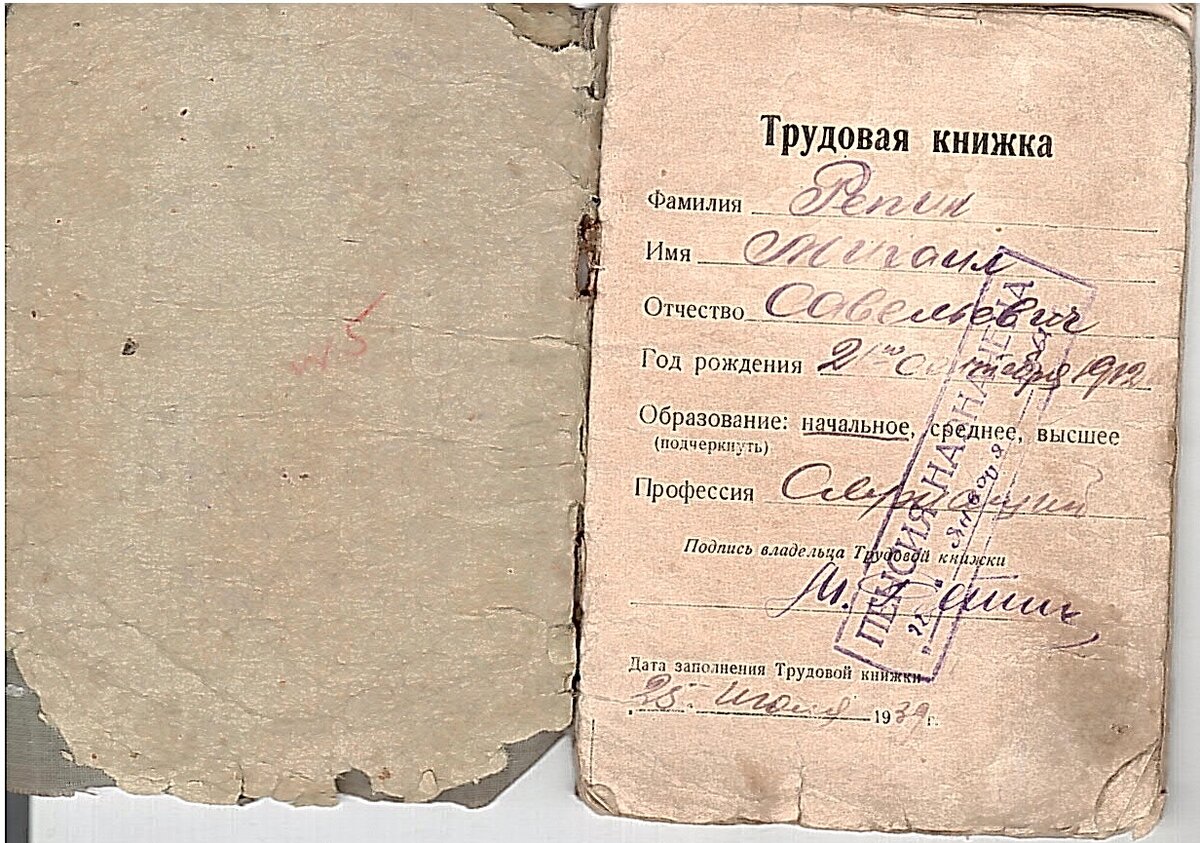 №5
Трудовая книжка
Фамилия Репин
Имя Михаил
Отчество Савельевич
Год рождения 21го 1912
Образование: начальное, среднее, высшее
(подчеркнуть)
Профессия
Подпись владельца Трудовой книжки
М. Репин
Дата заполнения Трудовой книжки
25 Июля 1939 г.
ПЕНСИЯ НАЗНАЧЕНА
"22" января